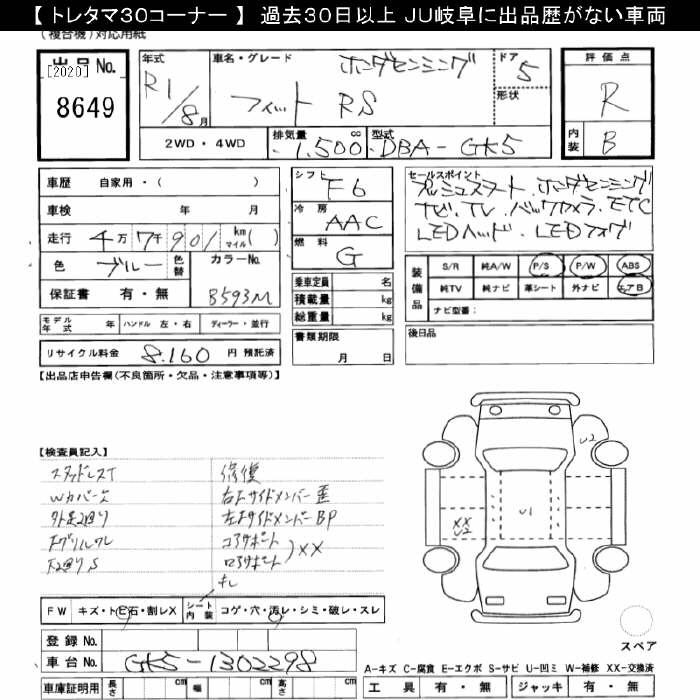 【 トレタマ30コーナー 】 過去30日以上 JU岐阜に出品歴がない車両
(複合機) 対応用紙
出品No.
[2020]
8649
年式
R1/8月
車名・グレード
ホンダセンシング
フィット RS
ドア
5
形状
評価点
R
内装
B
2WD・4WD
排気量
1,500 cc
型式
DBA-GK5
車歴 自家用・( )
車検 年 月
走行 4万7千901 km マイル ( )
色 ブルー 色替
カラーNo.
B593M
保証書 有・無
モデル年式 年 ハンドル 左・右 ディーラー・並行
リサイクル料金 8,160 円 預託済
シフト
F6
冷房
AAC
燃料
G
乗車定員 名
積載量 kg
総重量 kg
書類期限
月 日
セールスポイント
プッシュスタート、ホンダセンシング
ナビ、TV、バックカメラ、ETC
LEDヘッド、LEDフォグ
装備品
S/R 純A/W P/S P/W ABS
純TV 純ナビ 革シート 外ナビ エアB
ナビ型番:
後日品
【出品店申告欄(不良箇所・欠品・注意事項等)】
【検査員記入】
スタッドレスT
Wカバー欠
外走廻り
Fグリルワレ
修復
右Fサイドメンバー歪
左Fサイドメンバー BP
コアサポート
ロアサポート
XX
U2
XX
U2
U1
FW キズ・トビ石・割レX
シート内装 コゲ・穴・汚レ・シミ・破レ・スレ
登録No.
車台No. GK5-1302298
車庫証明用 長さ cm 幅 cm 高さ cm
スペア
A-キズ C-腐食 E-エクボ S-サビ U-凹ミ W-補修 XX-交換済
工具 有・無 ジャッキ 有・無